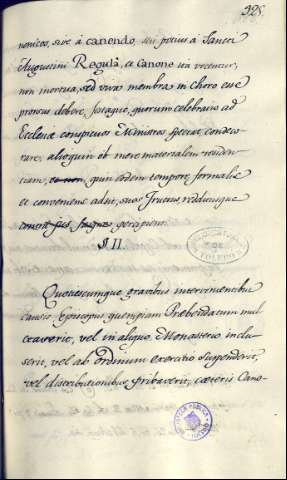 325.
nonicos, sive à canendo, seu potius à Sancti
Augustini Regulâ, et Canone ita vocentur,
non mortua, sed viva membra in choro esse
prorsus debere, satague, quorum celebratio ad
Ecclesiæ conspicuos Ministros spectat, condeco-
rare, alioquin ob mere materialem residen-
tiam, quin eodem tempore formalis
et conveniens adsit, suos fructus reddunt
percipiunt.
§ II
Quotiescumque gravibus intervenientibus
causis Episcopus quempiam Prebendatum mul-
ctaverit, vel in aliquo Monasterio inclu-
serit, vel ab Ordinum exercitio suspenderit,
vel distributionibus privaverit, cæteris Cano-
TOLEDO
BIBLIOTECA PUBLICA
TOLEDO